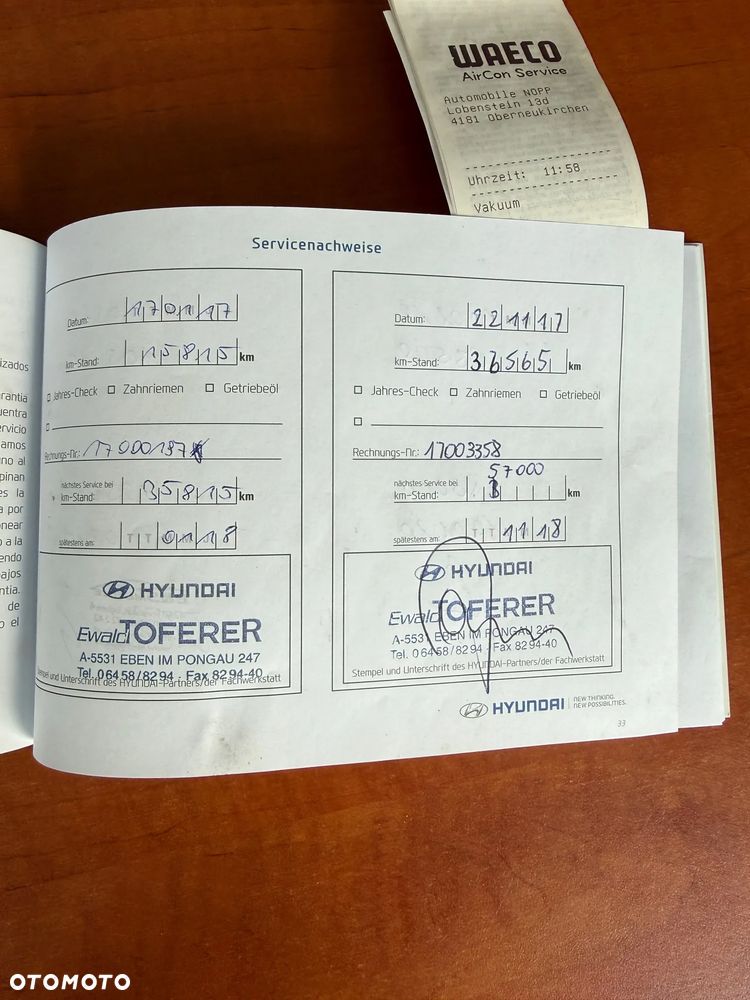 WAECO
AirCon Service
Automobile NOPP
Lobenstein 13d
4181 Oberneukirchen
Uhrzeit: 11:58
Vakuum
Servicenachweise
Datum: 17 01 17
km-Stand: 15815 km
Jahres-Check Zahnriemen Getriebeöl
Rechnungs-Nr.: 17000187
nächstes Service bei
km-Stand: 35815 km
spätestens am: T T 01 18
HYUNDAI
Ewald TOFERER
A-5531 EBEN IM PONGAU 247
Tel. 06458/8294 · Fax 8294-40
Stempel und Unterschrift des HYUNDAI-Partners/der Fachwerkstatt
Datum: 22 11 17
km-Stand: 36565 km
Jahres-Check Zahnriemen Getriebeöl
Rechnungs-Nr.: 17003358
57000
nächstes Service bei
km-Stand: 3 km
spätestens am: T T 11 18
HYUNDAI
Ewald TOFERER
A-5531 EBEN IM PONGAU 247
Tel. 06458/8294 · Fax 8294-40
Stempel und Unterschrift des HYUNDAI-Partners/der Fachwerkstatt
HYUNDAI NEW THINKING.
NEW POSSIBILITIES.
33
izados
arantía
uentra
ervicio
amos
uno al
pinan
es la
a por
onear
o a la
endo
bajos
ntía.
de
o el
OTOMOTO